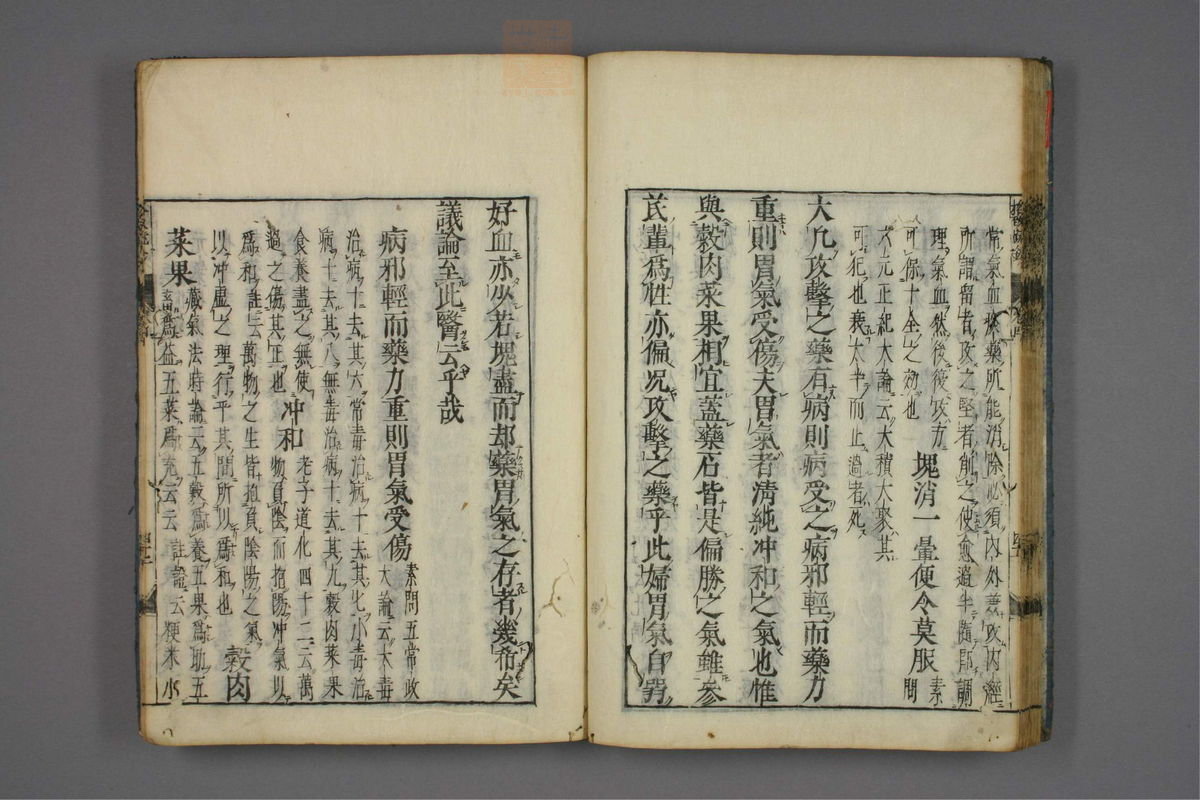 常氣血藥所能消除必須內外兼攻內經
所謂留者攻之堅者削之使愈過半隨即調
理氣血然後復攻方塊消一暈便令莫服素
可保十全之効也問
六元正紀大論云大積大聚其
可犯也衰太半而止過者死
大凢攻擊之藥有病則病受之病邪輕而藥力
重則胃氣受傷夫胃氣者清純冲和之氣也惟
與穀肉菜果相宜蓋藥石皆是偏勝之氣雖參
芪輩爲性亦偏况攻擊之藥乎此婦胃氣自弱
好血亦少若塊盡而却藥胃氣之存者幾希矣
議論至此醫云乎哉
病邪輕而藥力重則胃氣受傷素問五常政
大論云大毒
治病十去其六常毒治病十去其七小毒治
病十去其八無毒治病十去其九穀肉菜果
食養盡之無使
過之傷其正也冲和老子道化四十二云萬
物負陰而抱陽冲氣以
爲和註云萬物之生皆抱負陰陽之氣
以冲虛之理行乎其間所以爲和也穀肉
菜果藏氣法時論云五穀爲養五果爲助五
畜爲益五菜爲充云云註謂云粳米小